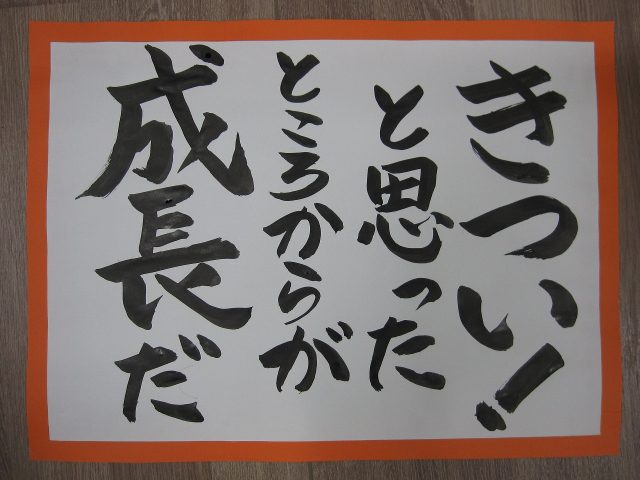 きつい！
と思った
ところからが
成長だ